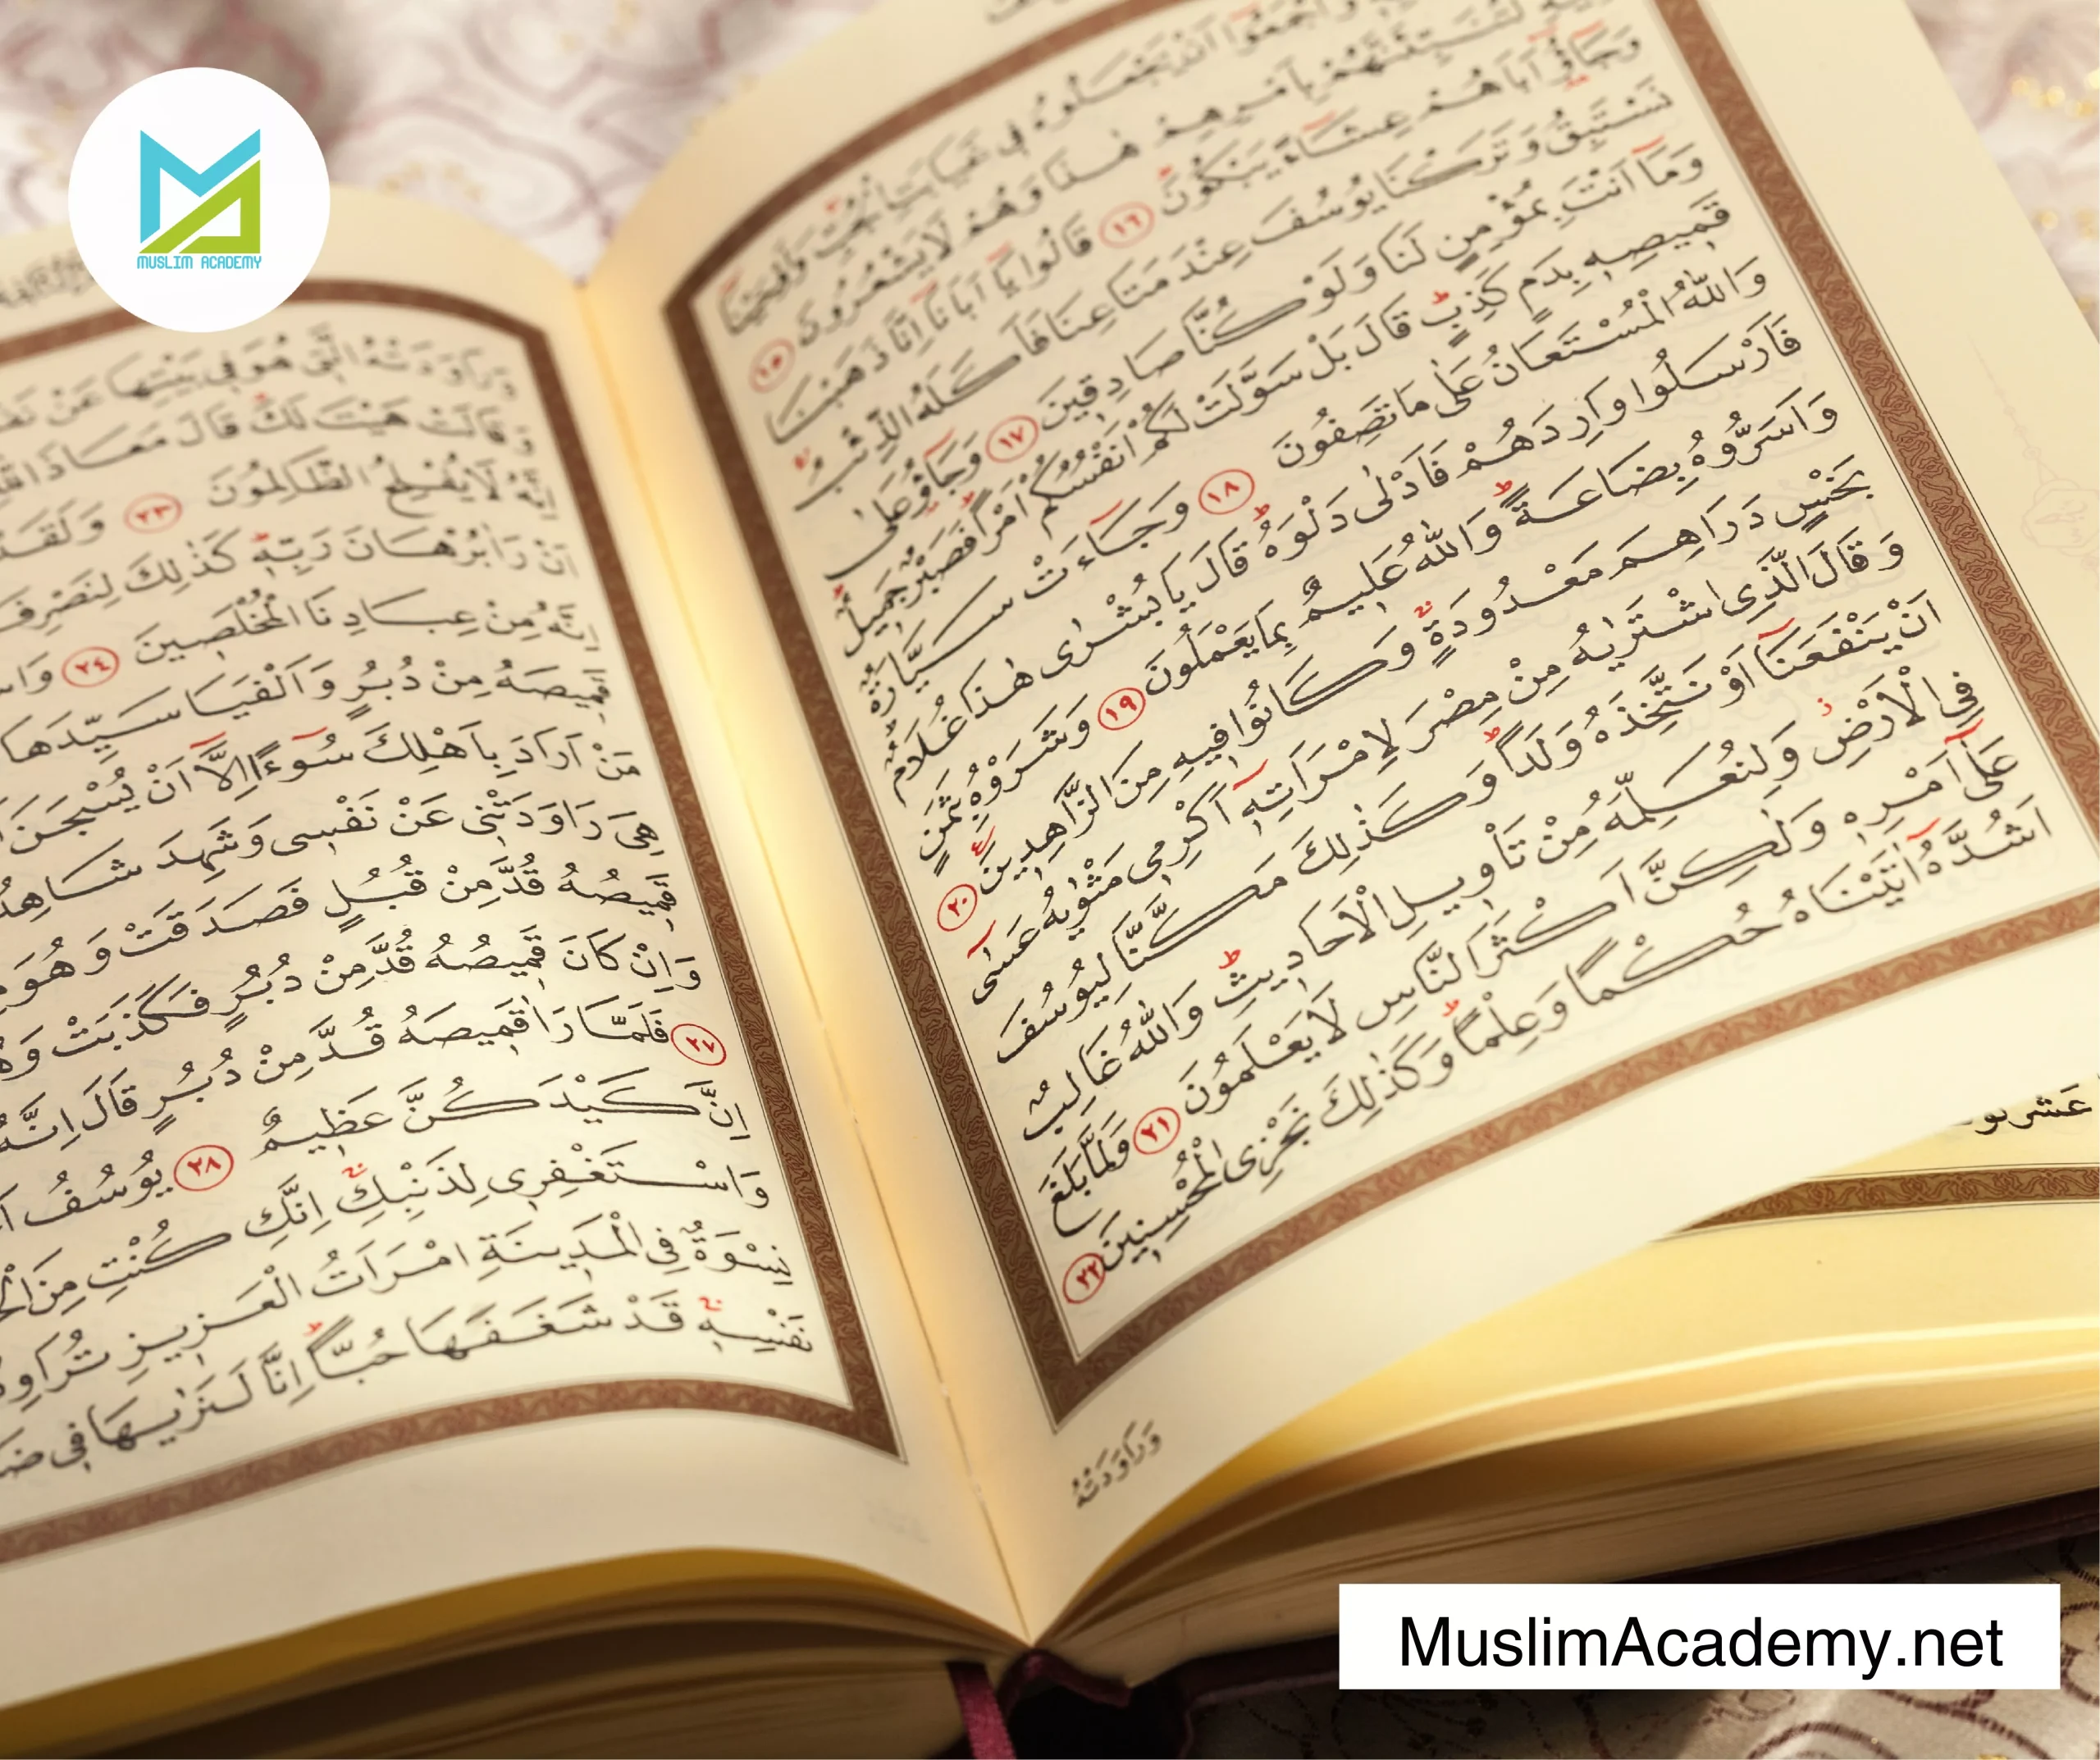 MUSLIM ACADEMY
وَاَجْمَعُوا اَنْ يَجْعَلُوهُ فِي غَيَابَتِ الْجُبِّ وَاَوْحَيْنَا
لَتُنَبِّئَنَّهُمْ بِاَمْرِهِمْ هٰذَا وَهُمْ لَا يَشْعُرُونَ ١٥
وَجَاؤُ اَبَاهُمْ عِشَاءً يَبْكُونَ ١٦ قَالُوا يَا اَبَانَا اِنَّا ذَهَبْنَا
نَسْتَبِقُ وَتَرَكْنَا يُوسُفَ عِنْدَ مَتَاعِنَا فَاَكَلَهُ الذِّئْبُ
وَمَا اَنْتَ بِمُؤْمِنٍ لَنَا وَلَوْ كُنَّا صَادِقِينَ ١٧ وَجَاؤُ عَلٰى
قَمِيصِهِ بِدَمٍ كَذِبٍ قَالَ بَلْ سَوَّلَتْ لَكُمْ اَنْفُسُكُمْ اَمْرًا فَصَبْرٌ جَمِيلٌ
وَاللّٰهُ الْمُسْتَعَانُ عَلٰى مَا تَصِفُونَ ١٨ وَجَاءَتْ سَيَّارَةٌ
فَاَرْسَلُوا وَارِدَهُمْ فَاَدْلٰى دَلْوَهُ قَالَ يَا بُشْرٰى هٰذَا غُلَامٌ
وَاَسَرُّوهُ بِضَاعَةً وَاللّٰهُ عَلِيمٌ بِمَا يَعْمَلُونَ ١٩ وَشَرَوْهُ بِثَمَنٍ
بَخْسٍ دَرَاهِمَ مَعْدُودَةٍ وَكَانُوا فِيهِ مِنَ الزَّاهِدِينَ ٢٠
وَقَالَ الَّذِي اشْتَرٰيهُ مِنْ مِصْرَ لِامْرَاَتِهِ اَكْرِمِي مَثْوٰيهُ عَسٰى
اَنْ يَنْفَعَنَا اَوْ نَتَّخِذَهُ وَلَدًا وَكَذٰلِكَ مَكَّنَّا لِيُوسُفَ
فِي الْاَرْضِ وَلِنُعَلِّمَهُ مِنْ تَأْوِيلِ الْاَحَادِيثِ وَاللّٰهُ غَالِبٌ
عَلٰى اَمْرِهِ وَلٰكِنَّ اَكْثَرَ النَّاسِ لَا يَعْلَمُونَ ٢١ وَلَمَّا بَلَغَ
اَشُدَّهُ اٰتَيْنَاهُ حُكْمًا وَعِلْمًا وَكَذٰلِكَ نَجْزِي الْمُحْسِنِينَ ٢٢
وَرَاوَدَتْهُ
وَرَاوَدَتْهُ الَّتِي هُوَ فِي بَيْتِهَا عَنْ
وَقَالَتْ هَيْتَ لَكَ قَالَ مَعَاذَ
اِنَّهُ لَا يُفْلِحُ الظَّالِمُونَ ٢٣ وَلَقَدْ
اَنْ رَاٰ بُرْهَانَ رَبِّهِ كَذٰلِكَ لِنَصْرِفَ
اِنَّهُ مِنْ عِبَادِنَا الْمُخْلَصِينَ ٢٤
قَمِيصَهُ مِنْ دُبُرٍ وَاَلْفَيَا سَيِّدَهَا
مَنْ اَرَادَ بِاَهْلِكَ سُوءًا اِلَّا اَنْ يُسْجَنَ
هِيَ رَاوَدَتْنِي عَنْ نَفْسِي وَشَهِدَ شَاهِدٌ
قَمِيصُهُ قُدَّ مِنْ قُبُلٍ فَصَدَقَتْ وَهُوَ
وَاِنْ كَانَ قَمِيصُهُ قُدَّ مِنْ دُبُرٍ فَكَذَبَتْ
٢٧ فَلَمَّا رَاٰ قَمِيصَهُ قُدَّ مِنْ دُبُرٍ قَالَ اِنَّهُ
اِنَّ كَيْدَكُنَّ عَظِيمٌ ٢٨ يُوسُفُ
وَاسْتَغْفِرِي لِذَنْبِكِ اِنَّكِ كُنْتِ مِنَ
نِسْوَةٌ فِي الْمَدِينَةِ امْرَاَتُ الْعَزِيزِ تُرَاوِدُ
نَفْسِهِ قَدْ شَغَفَهَا حُبًّا اِنَّا لَنَرٰيهَا فِي
MuslimAcademy.net